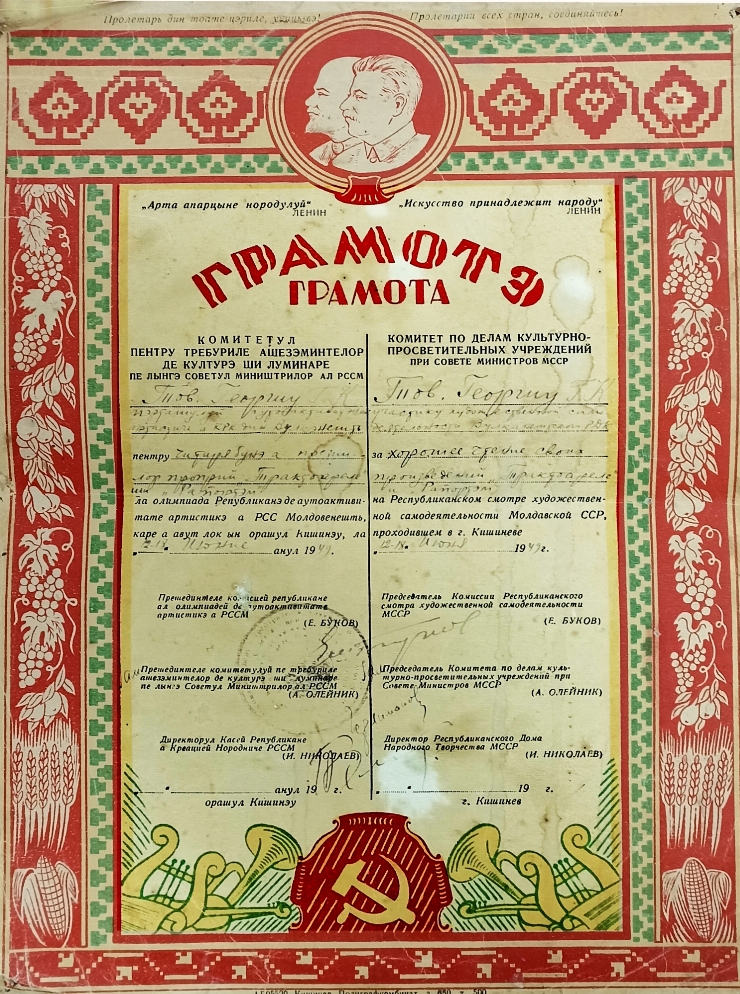 Пролетарь дин тоате цэриле, уници-вэ!
Пролетарии всех стран, соединяйтесь!
„Арта апарцыне нородулуй“
ЛЕНИН
„Искусство принадлежит народу“
ЛЕНИН
ГРАМОТЭ
ГРАМОТА
КОМИТЕТУЛ
ПЕНТРУ ТРЕБУРИЛЕ АШЕЗЭМИНТЕЛОР
ДЕ КУЛТУРЭ ШИ ЛУМИНАРЕ
ПЕ ЛЫНГЭ СОВЕТУЛ МИНИШТРИЛОР АЛ РССМ
Тов. Георгиу
пентру
лор проприй
ла олимпиада Републиканэ де аутоактиви-
тате артистикэ а РСС Молдовенешть,
каре а авут лок ын орашул Кишинэу, ла
12-18 Июние анул 1949.
Прешединтеле комисией републикане
ал олимпиадей де аутоактивитате
артистикэ а РССМ
(Е. БУКОВ)
Прешединтеле комитетулуй пе требуриле
ашеземинтелор де културэ ши луминаре
пе лынгэ Советул Миништрилор ал РССМ
(А. ОЛЕЙНИК)
Директорул Касей Републикане
а Креацией Народниче РССМ
(И. НИКОЛАЕВ)
„ “ анул 19 г.
орашул Кишинэу
КОМИТЕТ ПО ДЕЛАМ КУЛЬТУРНО-
ПРОСВЕТИТЕЛЬНЫХ УЧРЕЖДЕНИЙ
ПРИ СОВЕТЕ МИНИСТРОВ МССР
Тов. Георгиу П. К
участнику художественной само-
деятельности Вулканештского РДК
за хорошее чтение своих
произведений
на Республиканском смотре художествен-
ной самодеятельности Молдавской ССР,
проходившем в г. Кишиневе
„12-18“ Июня 1949 г.
Председатель Комиссии Республиканского
смотра художественной самодеятельности
МССР
(Е. БУКОВ)
Председатель Комитета по делам куль-
турно-просветительных учреждений при
Совете Министров МССР
(А. ОЛЕЙНИК)
Директор Республиканского Дома
Народного Творчества МССР
(И. НИКОЛАЕВ)
„ “ 19 г.
г. Кишинев
АБ05520 Кишинев, Полиграфкомбинат, з. 850 т. 500